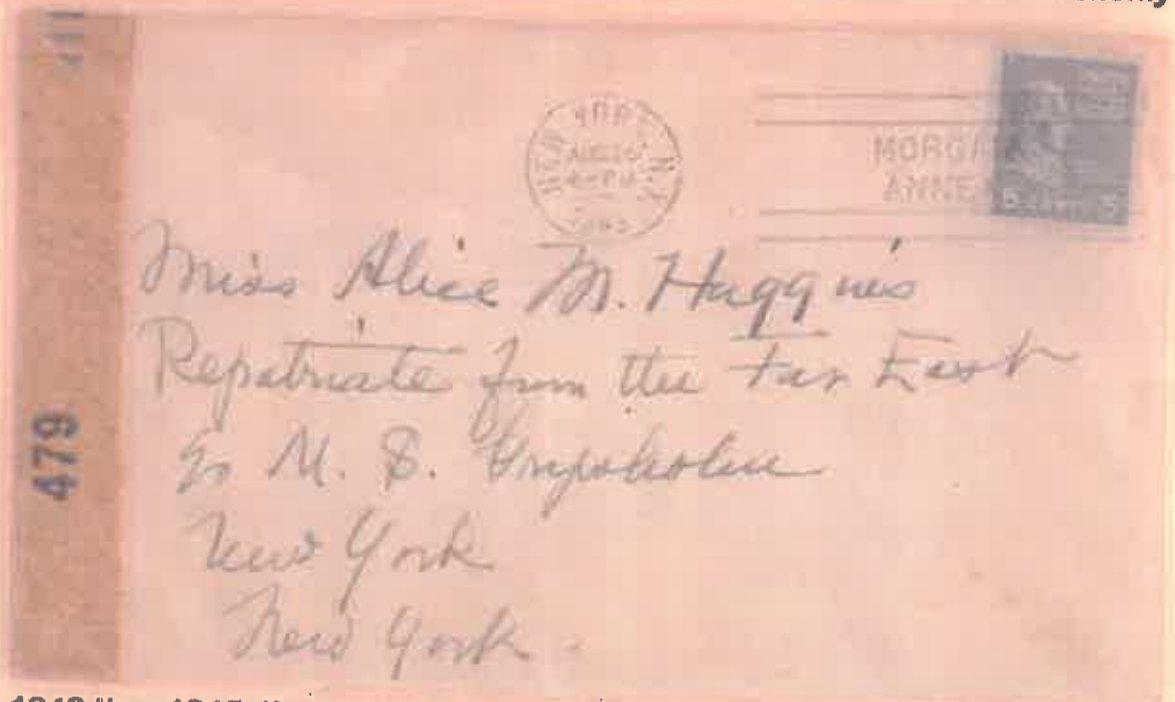 479
NEW YORK, N.Y.
MORGA
ANNE
5 CENTS 5
Miss Alice M. Huggins
Repatriate from the Far East
M. S. Gripsholm
New York
New York.